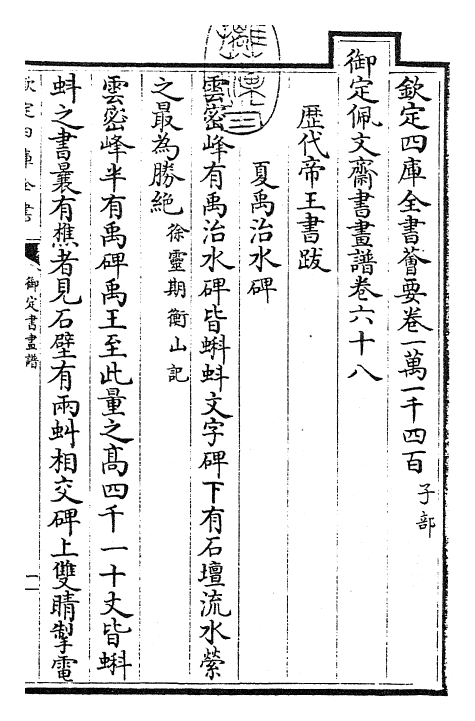 欽定四庫全書薈要卷一萬一千四百 子部
御定佩文齋書畫譜卷六十八
歷代帝王書跋
夏禹治水碑
雲密峰有禹治水碑皆蝌蚪文字碑下有石壇流水縈
之最為勝絶 徐靈期衡山記
雲密峰半有禹碑禹王至此量之髙四千一十丈皆蝌
蚪之書曩有樵者見石壁有兩虯相交碑上雙睛掣電
欽定四庫全書
御定書畫譜
一